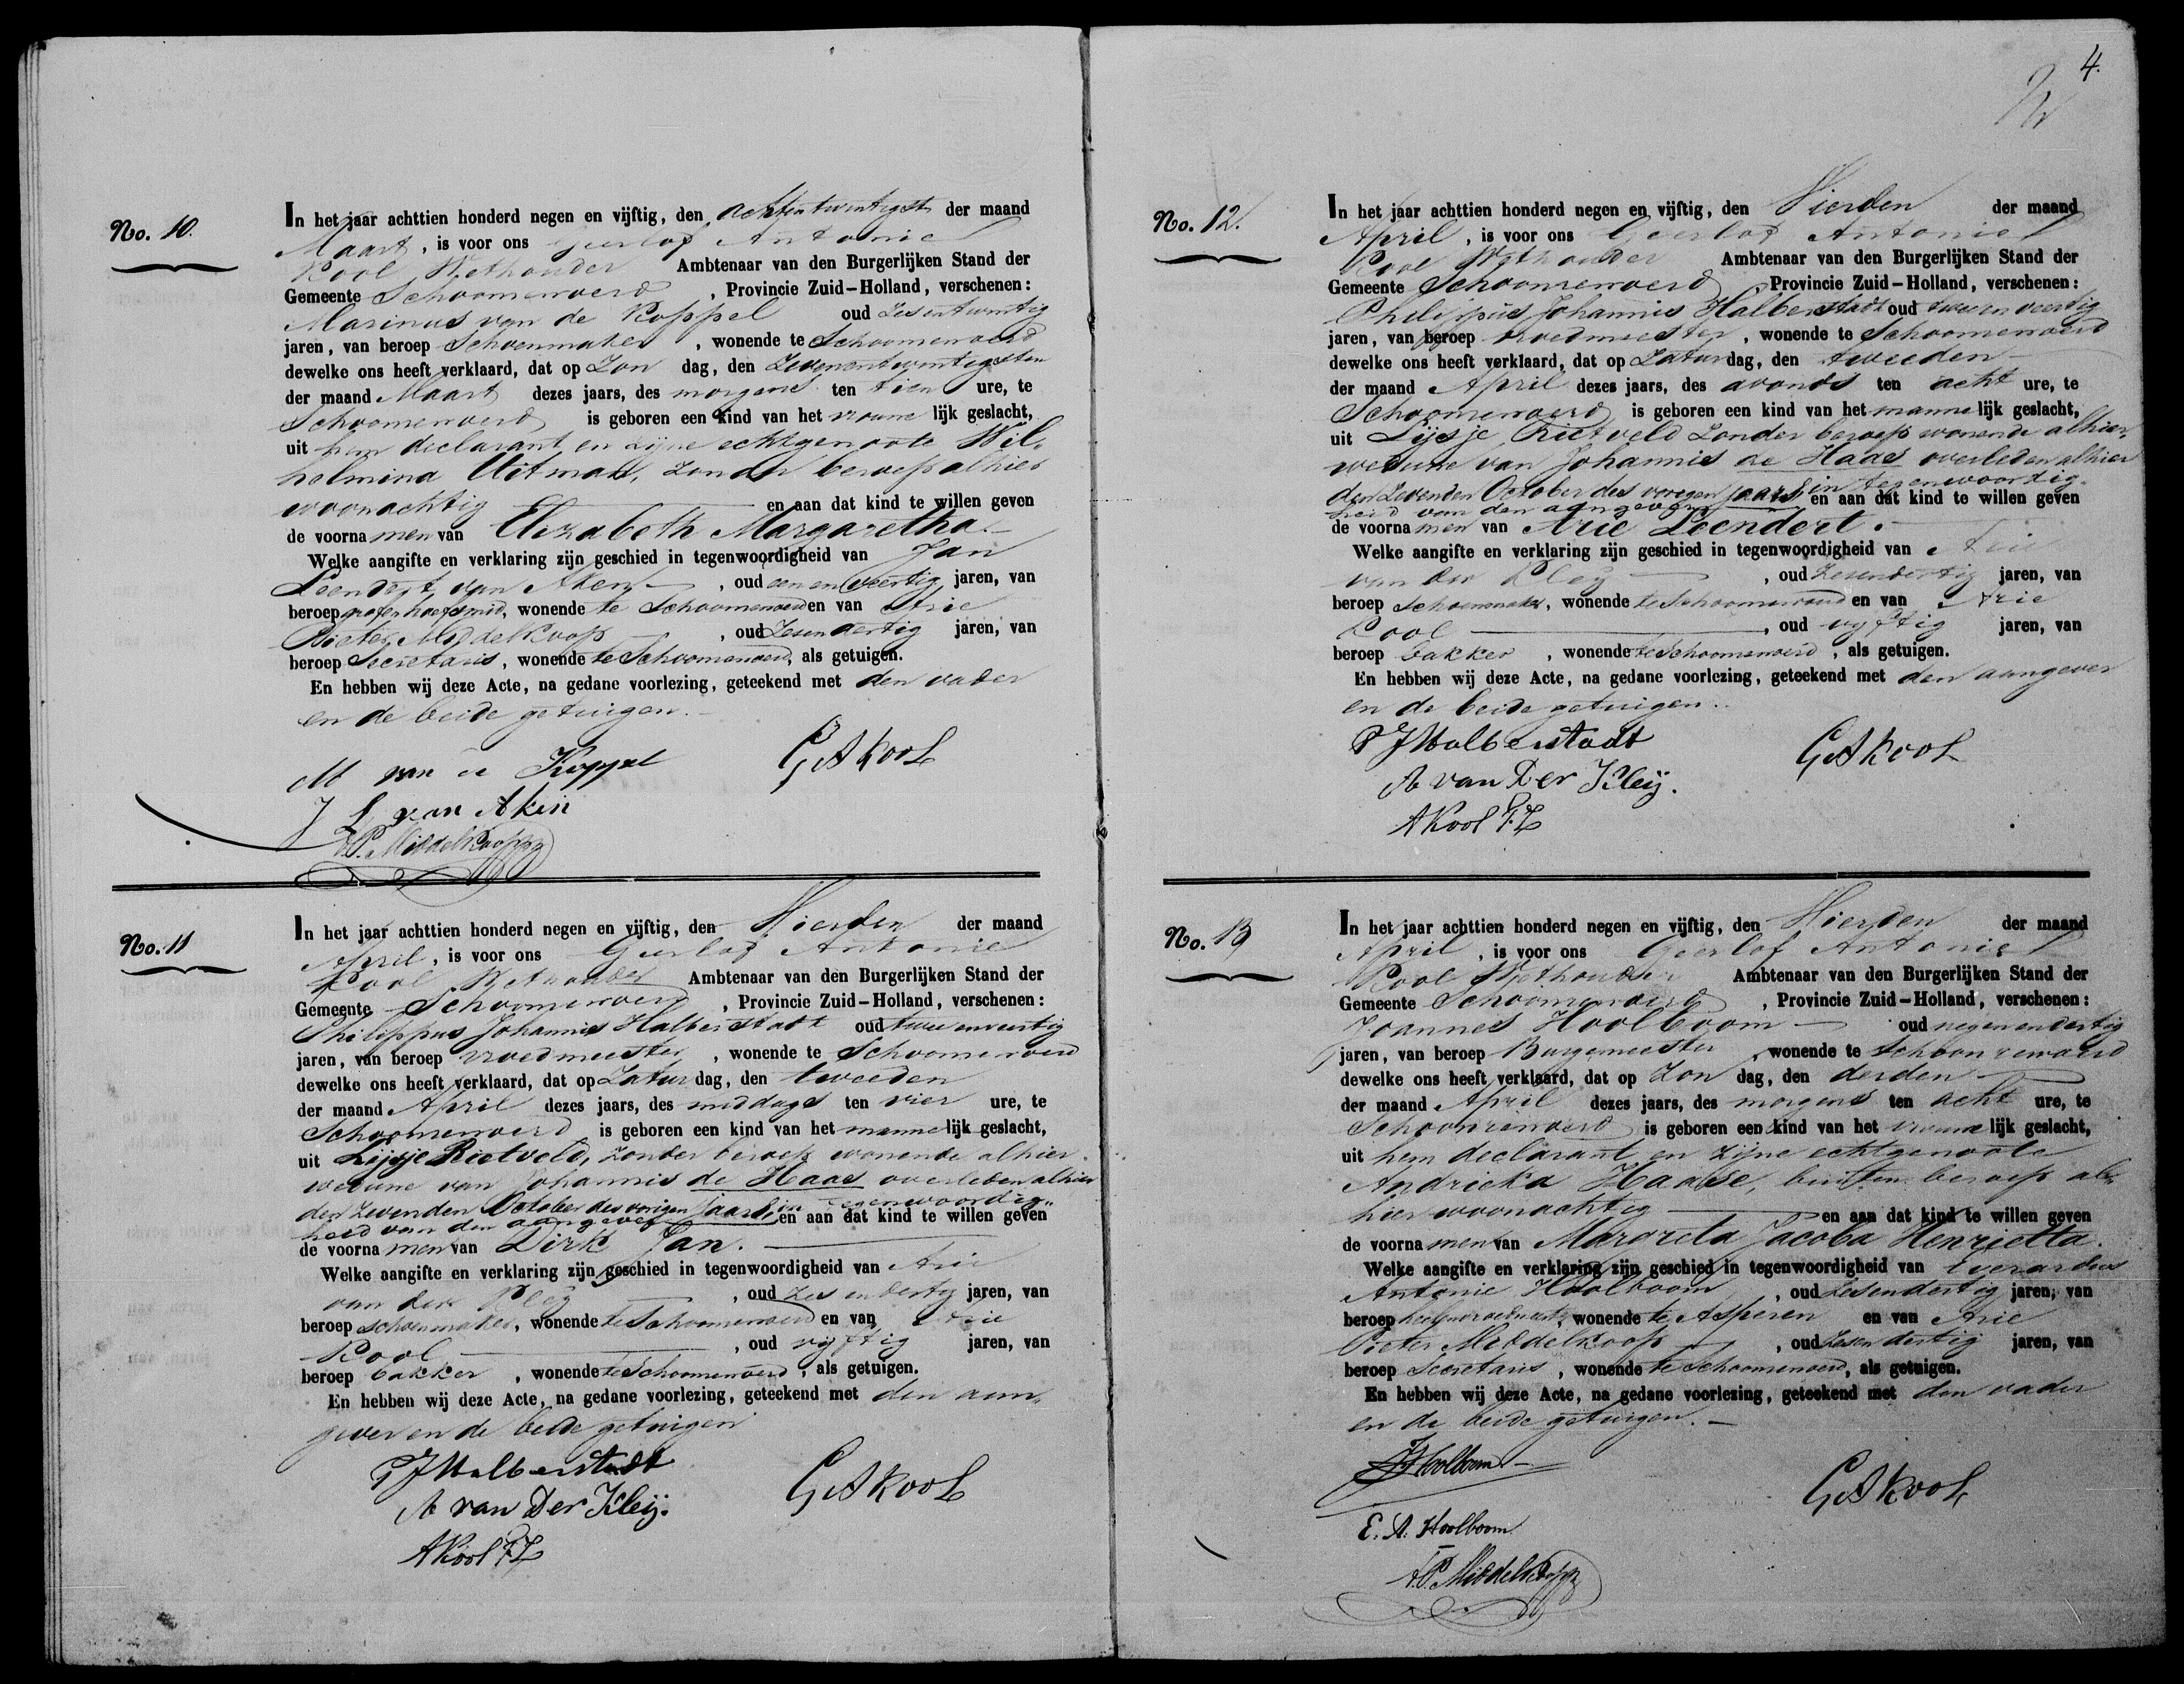 No. 10.
In het jaar achttien honderd negen en vijftig, den Achtentwintigsten der maand
Maart, is voor ons Geerlof Antonie
Kool Wethouder Ambtenaar van den Burgerlijken Stand der
Gemeente Schoonrewoerd, Provincie Zuid-Holland, verschenen:
Marinus van de Koppel oud zesentwintig
jaren, van beroep Schoenmaker, wonende te Schoonrewoerd
dewelke ons heeft verklaard, dat op Zon dag, den Zevenentwintigsten
der maand Maart dezes jaars, des morgens ten tien ure, te
Schoonrewoerd is geboren een kind van het vrouwe lijk geslacht,
uit hem declarant en zijne echtgenoote Wil-
helmina Uitman, zonder beroep alhier
woonachtig en aan dat kind te willen geven
de voorna men van Elizabeth Margaretha.
Welke aangifte en verklaring zijn geschied in tegenwoordigheid van Jan
Leendert van Aken, oud een en veertig jaren, van
beroep grofenhoefsmid, wonende te Schoonrewoerd en van Arie
Pieter Middelkoop, oud zesendertig jaren, van
beroep Secretaris, wonende te Schoonrewoerd, als getuigen.
En hebben wij deze Acte, na gedane voorlezing, geteekend met den vader
en de beide getuigen.
M van de Koppel GAKool
J L van Aken
A.P. Middelkoop
No. 11
In het jaar achttien honderd negen en vijftig, den Vierden der maand
April, is voor ons Geerlof Antonie
Kool Wethouder Ambtenaar van den Burgerlijken Stand der
Gemeente Schoonrewoerd, Provincie Zuid-Holland, verschenen:
Philippus Johannis Halberstadt oud twee en veertig
jaren, van beroep vroedmeester, wonende te Schoonrewoerd
dewelke ons heeft verklaard, dat op Zatur dag, den tweeden
der maand April dezes jaars, des middags ten vier ure, te
Schoonrewoerd is geboren een kind van het manne lijk geslacht,
uit Lijsje Rietveld, zonder beroep wonende alhier.
weduwe van Johannis de Haas overleden alhier
den zevenden October des vorigen jaars, in tegenwoordig-
heid van den aangever en aan dat kind te willen geven
de voorna men van Dirk Jan.
Welke aangifte en verklaring zijn geschied in tegenwoordigheid van Arie
van der Kleij, oud zes en dertig jaren, van
beroep schoenmaker, wonende te Schoonrewoerd en van Arie
Kool, oud vijftig jaren, van
beroep bakker, wonende te Schoonrewoerd, als getuigen.
En hebben wij deze Acte, na gedane voorlezing, geteekend met den aan-
gever en de beide getuigen
PJHalberstadt
A van Der Kleij. GAKool
AKool FZ
4.
No. 12.
In het jaar achttien honderd negen en vijftig, den Vierden der maand
April, is voor ons Geerlof Antonie
Kool Wethouder Ambtenaar van den Burgerlijken Stand der
Gemeente Schoonrewoerd, Provincie Zuid-Holland, verschenen:
Philippus Johannis Halberstadt oud twee en veertig
jaren, van beroep vroedmeester, wonende te Schoonrewoerd
dewelke ons heeft verklaard, dat op Zatur dag, den tweeden
der maand April dezes jaars, des avonds ten acht ure, te
Schoonrewoerd is geboren een kind van het manne lijk geslacht,
uit Lijsje Rietveld zonder beroep wonende alhier,
weduwe van Johannis de Haas overleden alhier
den zevenden October des vorigen jaars, in tegenwoordig-
heid van den aangever en aan dat kind te willen geven
de voorna men van Arie Leendert.
Welke aangifte en verklaring zijn geschied in tegenwoordigheid van Arie
van der Kleij, oud zesendertig jaren, van
beroep Schoenmaker, wonende te Schoonrewoerd en van Arie
Kool, oud vijftig jaren, van
beroep bakker, wonende te Schoonrewoerd, als getuigen.
En hebben wij deze Acte, na gedane voorlezing, geteekend met den aangever
en de beide getuigen.
PJHalberstadt GAKool
A van Der Kleij.
AKool FZ
No. 13
In het jaar achttien honderd negen en vijftig, den Vierden der maand
April, is voor ons Geerlof Antonie
Kool Wethouder Ambtenaar van den Burgerlijken Stand der
Gemeente Schoonrewoerd, Provincie Zuid-Holland, verschenen:
Joannes Hoolboom oud negenendertig
jaren, van beroep Burgemeester, wonende te Schoonrewoerd
dewelke ons heeft verklaard, dat op Zon dag, den derden
der maand April dezes jaars, des morgens ten acht ure, te
Schoonrewoerd is geboren een kind van het vrouwe lijk geslacht,
uit hem declarant en zijne echtgenoote
Andricka Haase, buiten beroep al-
hier woonachtig en aan dat kind te willen geven
de voorna men van Margreta Jacoba Henrietta.
Welke aangifte en verklaring zijn geschied in tegenwoordigheid van Everardus
Antonie Hoolboom, oud zesendertig jaren, van
beroep wonende te Asperen en van Arie
Pieter Middelkoop, oud zesendertig jaren, van
beroep Secretaris, wonende te Schoonrewoerd, als getuigen.
En hebben wij deze Acte, na gedane voorlezing, geteekend met den vader
en de beide getuigen.
JHoolboom GAKool
E. A. Hoolboom
A.P. Middelkoop